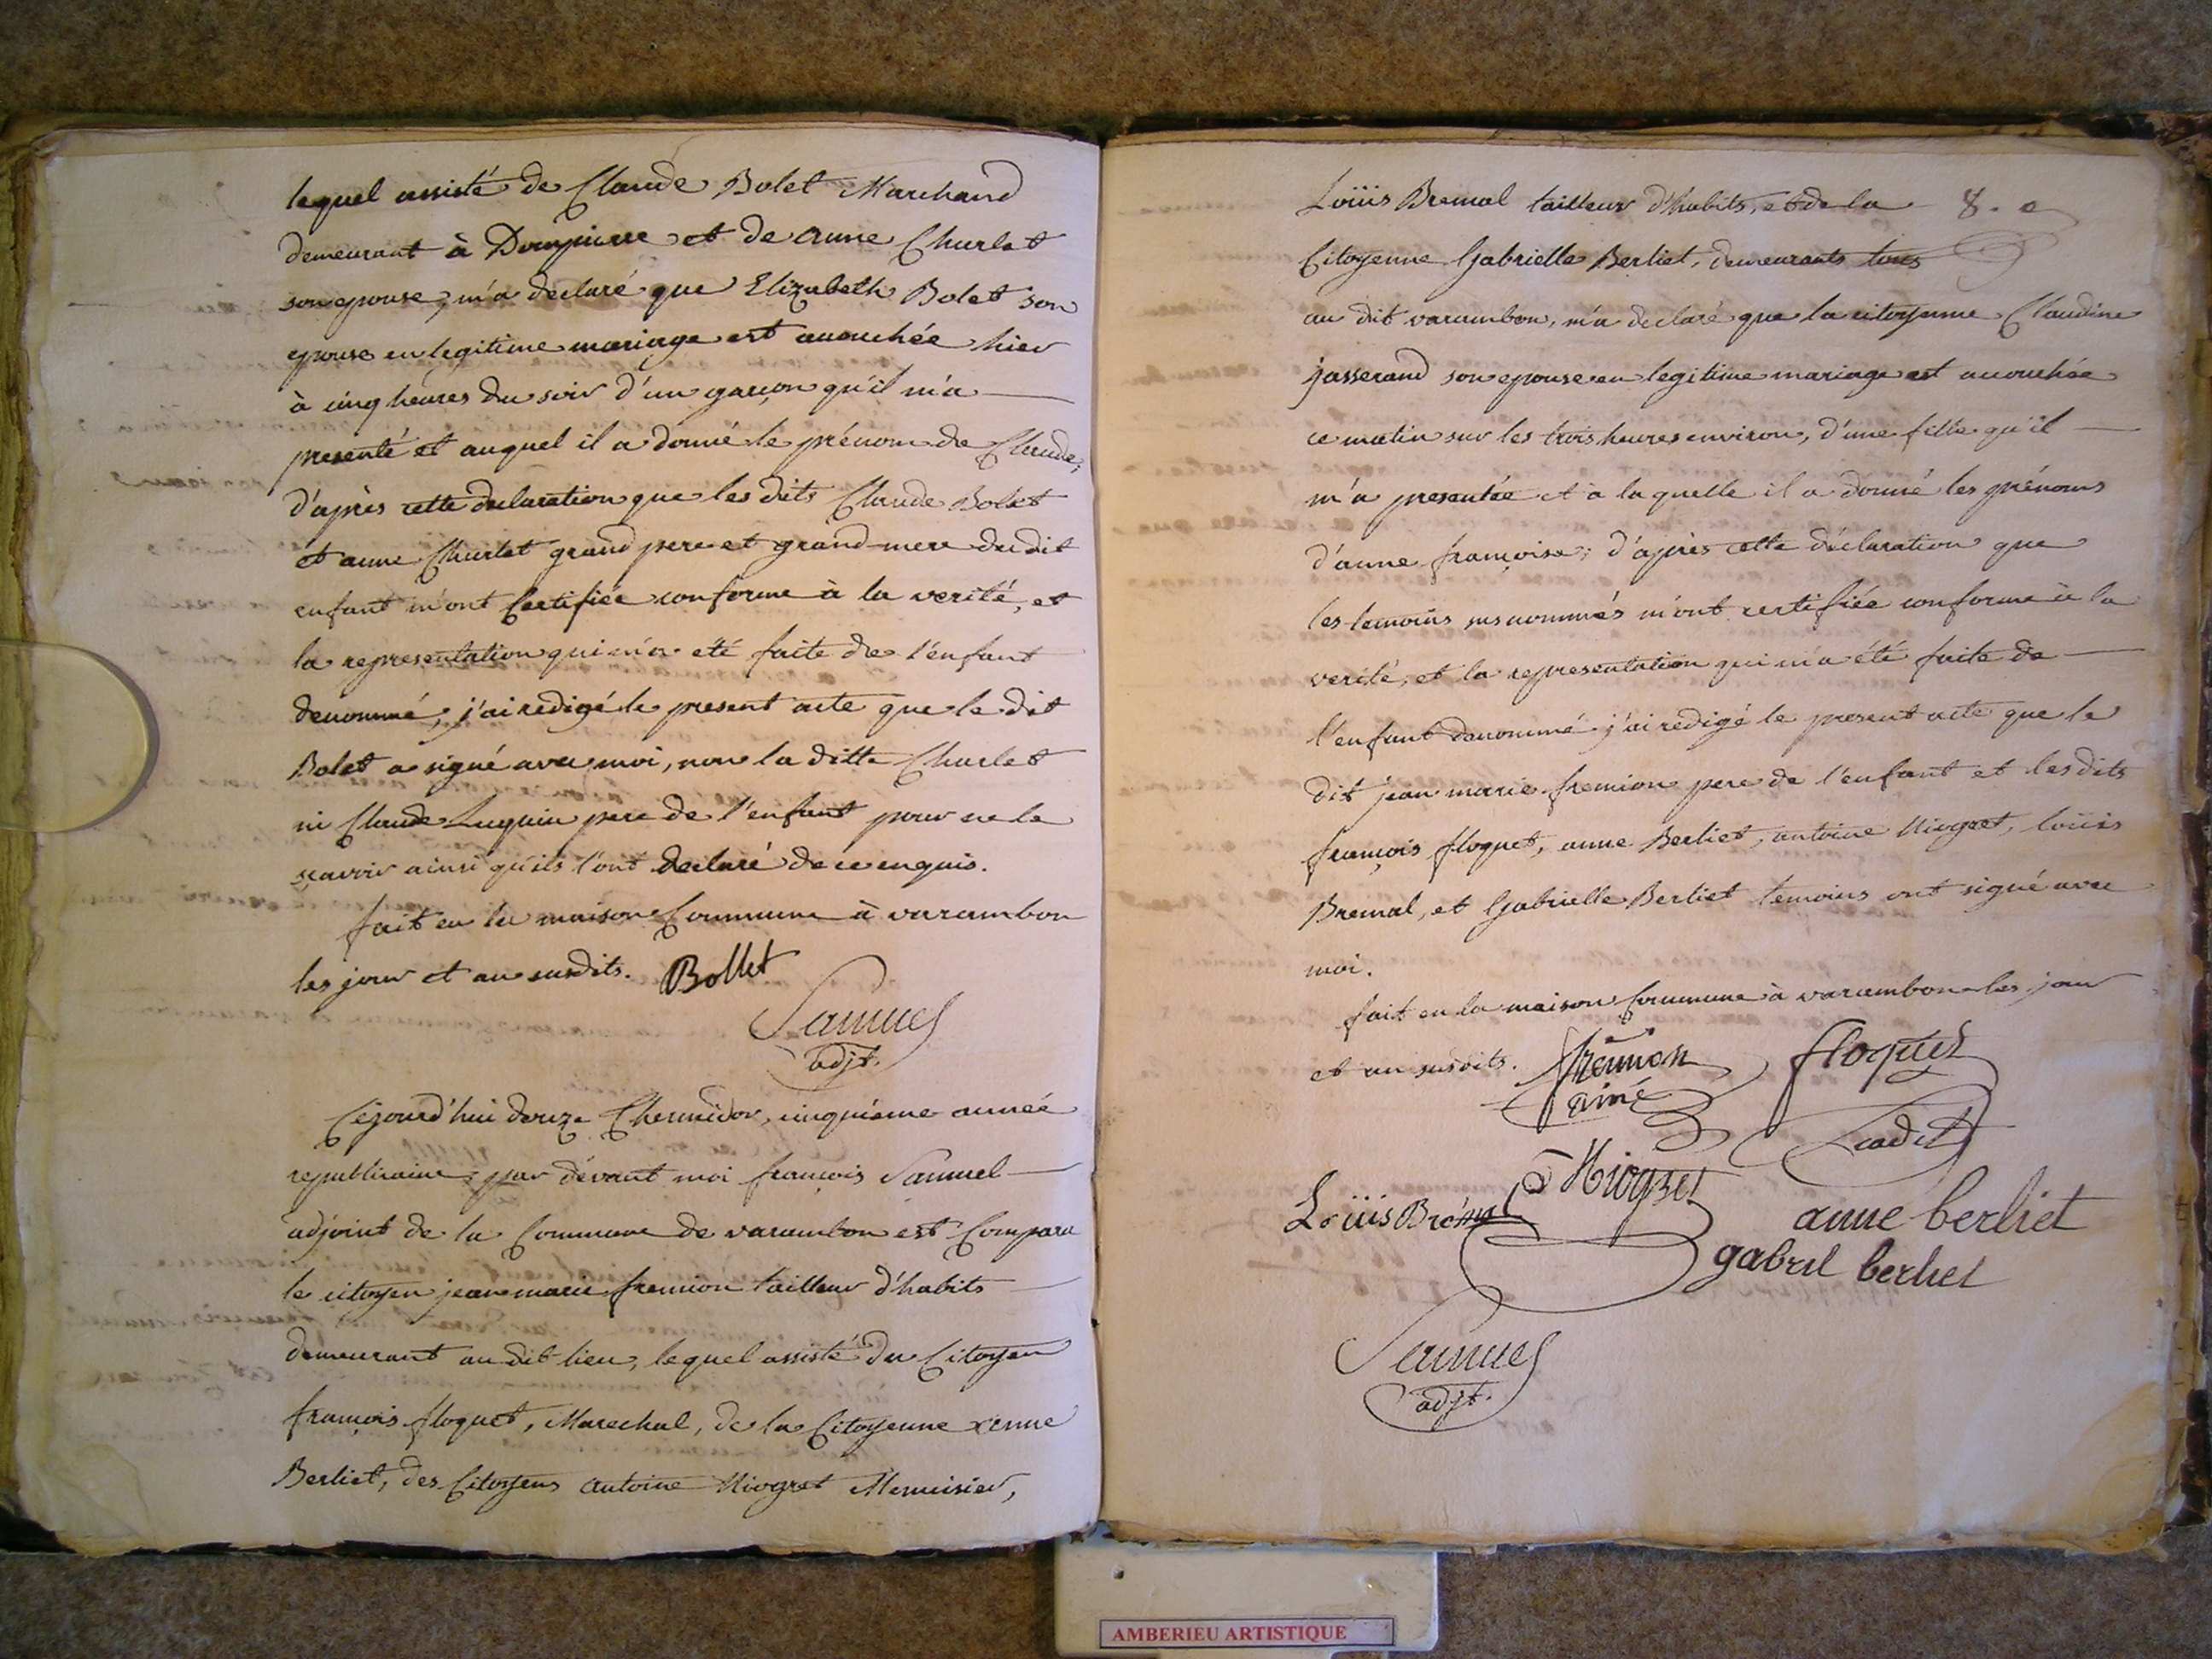 lequel assisté de Claude Bolet Marchand
demeurant à Dompierre et de anne Churlet
son epouse, m'a declaré que Elizabeth Bolet son
epouse en legitime mariage est accouchée hier
à cinq heures du soir d'un garçon qu'il m'a
presenté et auquel il a donné le prénom de Claude;
d'après cette declaration que les dits Claude Bolet
et anne Churlet grand pere et grand-mere du dit
enfant m'ont Certifiée conforme à la verité, et
la representation qui m'a été faite de l'enfant
denommé, j'ai redigé le present acte que le dit
Bolet a signé avec moi, non la ditte Churlet
ni Claude Luquin pere de l'enfant pour ne le
sçavoir ainsi qu'ils l'ont declaré de ce enquis.
fait en la maison Commune à varambon
les jour et an susdits. Bollet
Samuel
adjt.
Cejourd'hui douze Thermidor, cinquieme année
republicaine, par devant moi françois Samuel
adjoint de la Commune de varambon est Comparu
le citoyen jean marie fremion tailleur d'habits
demeurant au dit lieu, lequel assisté du Citoyen
françois floquet, Marechal, de la Citoyenne anne
Berliet, des Citoyens antoine Niogret Menuisier,
Loüis Bremal tailleur d'habits, et de la 8.e
Citoyenne Gabrielle Berliet, demeurants tous
au dit varambon, m'a declaré que la citoyenne Claudine
jasserand son epouse en legitime mariage est accouchée
ce matin sur les trois heures environ, d'une fille qu'il
m'a presentée et à laquelle il a donné les prénoms
d'anne françoise; d'après cette déclaration que
les temoins susnommés m'ont certifiée conforme à la
verité, et la representation qui m'a été faite de
l'enfant denommé j'ai redigé le present acte que le
dit jean marie fremion pere de l'enfant et les dits
françois floquet, anne Berliet, antoine Niogret, loüis
Bremal, et Gabrielle Berliet temoins ont signé avec
moi.
fait en la maison Commune à varambon les jour
et an susdits. frémion floquet
aimé
Niogret
Loüis Brémal anne berliet
gabril berliet
Samuel
adjt.
AMBERIEU ARTISTIQUE